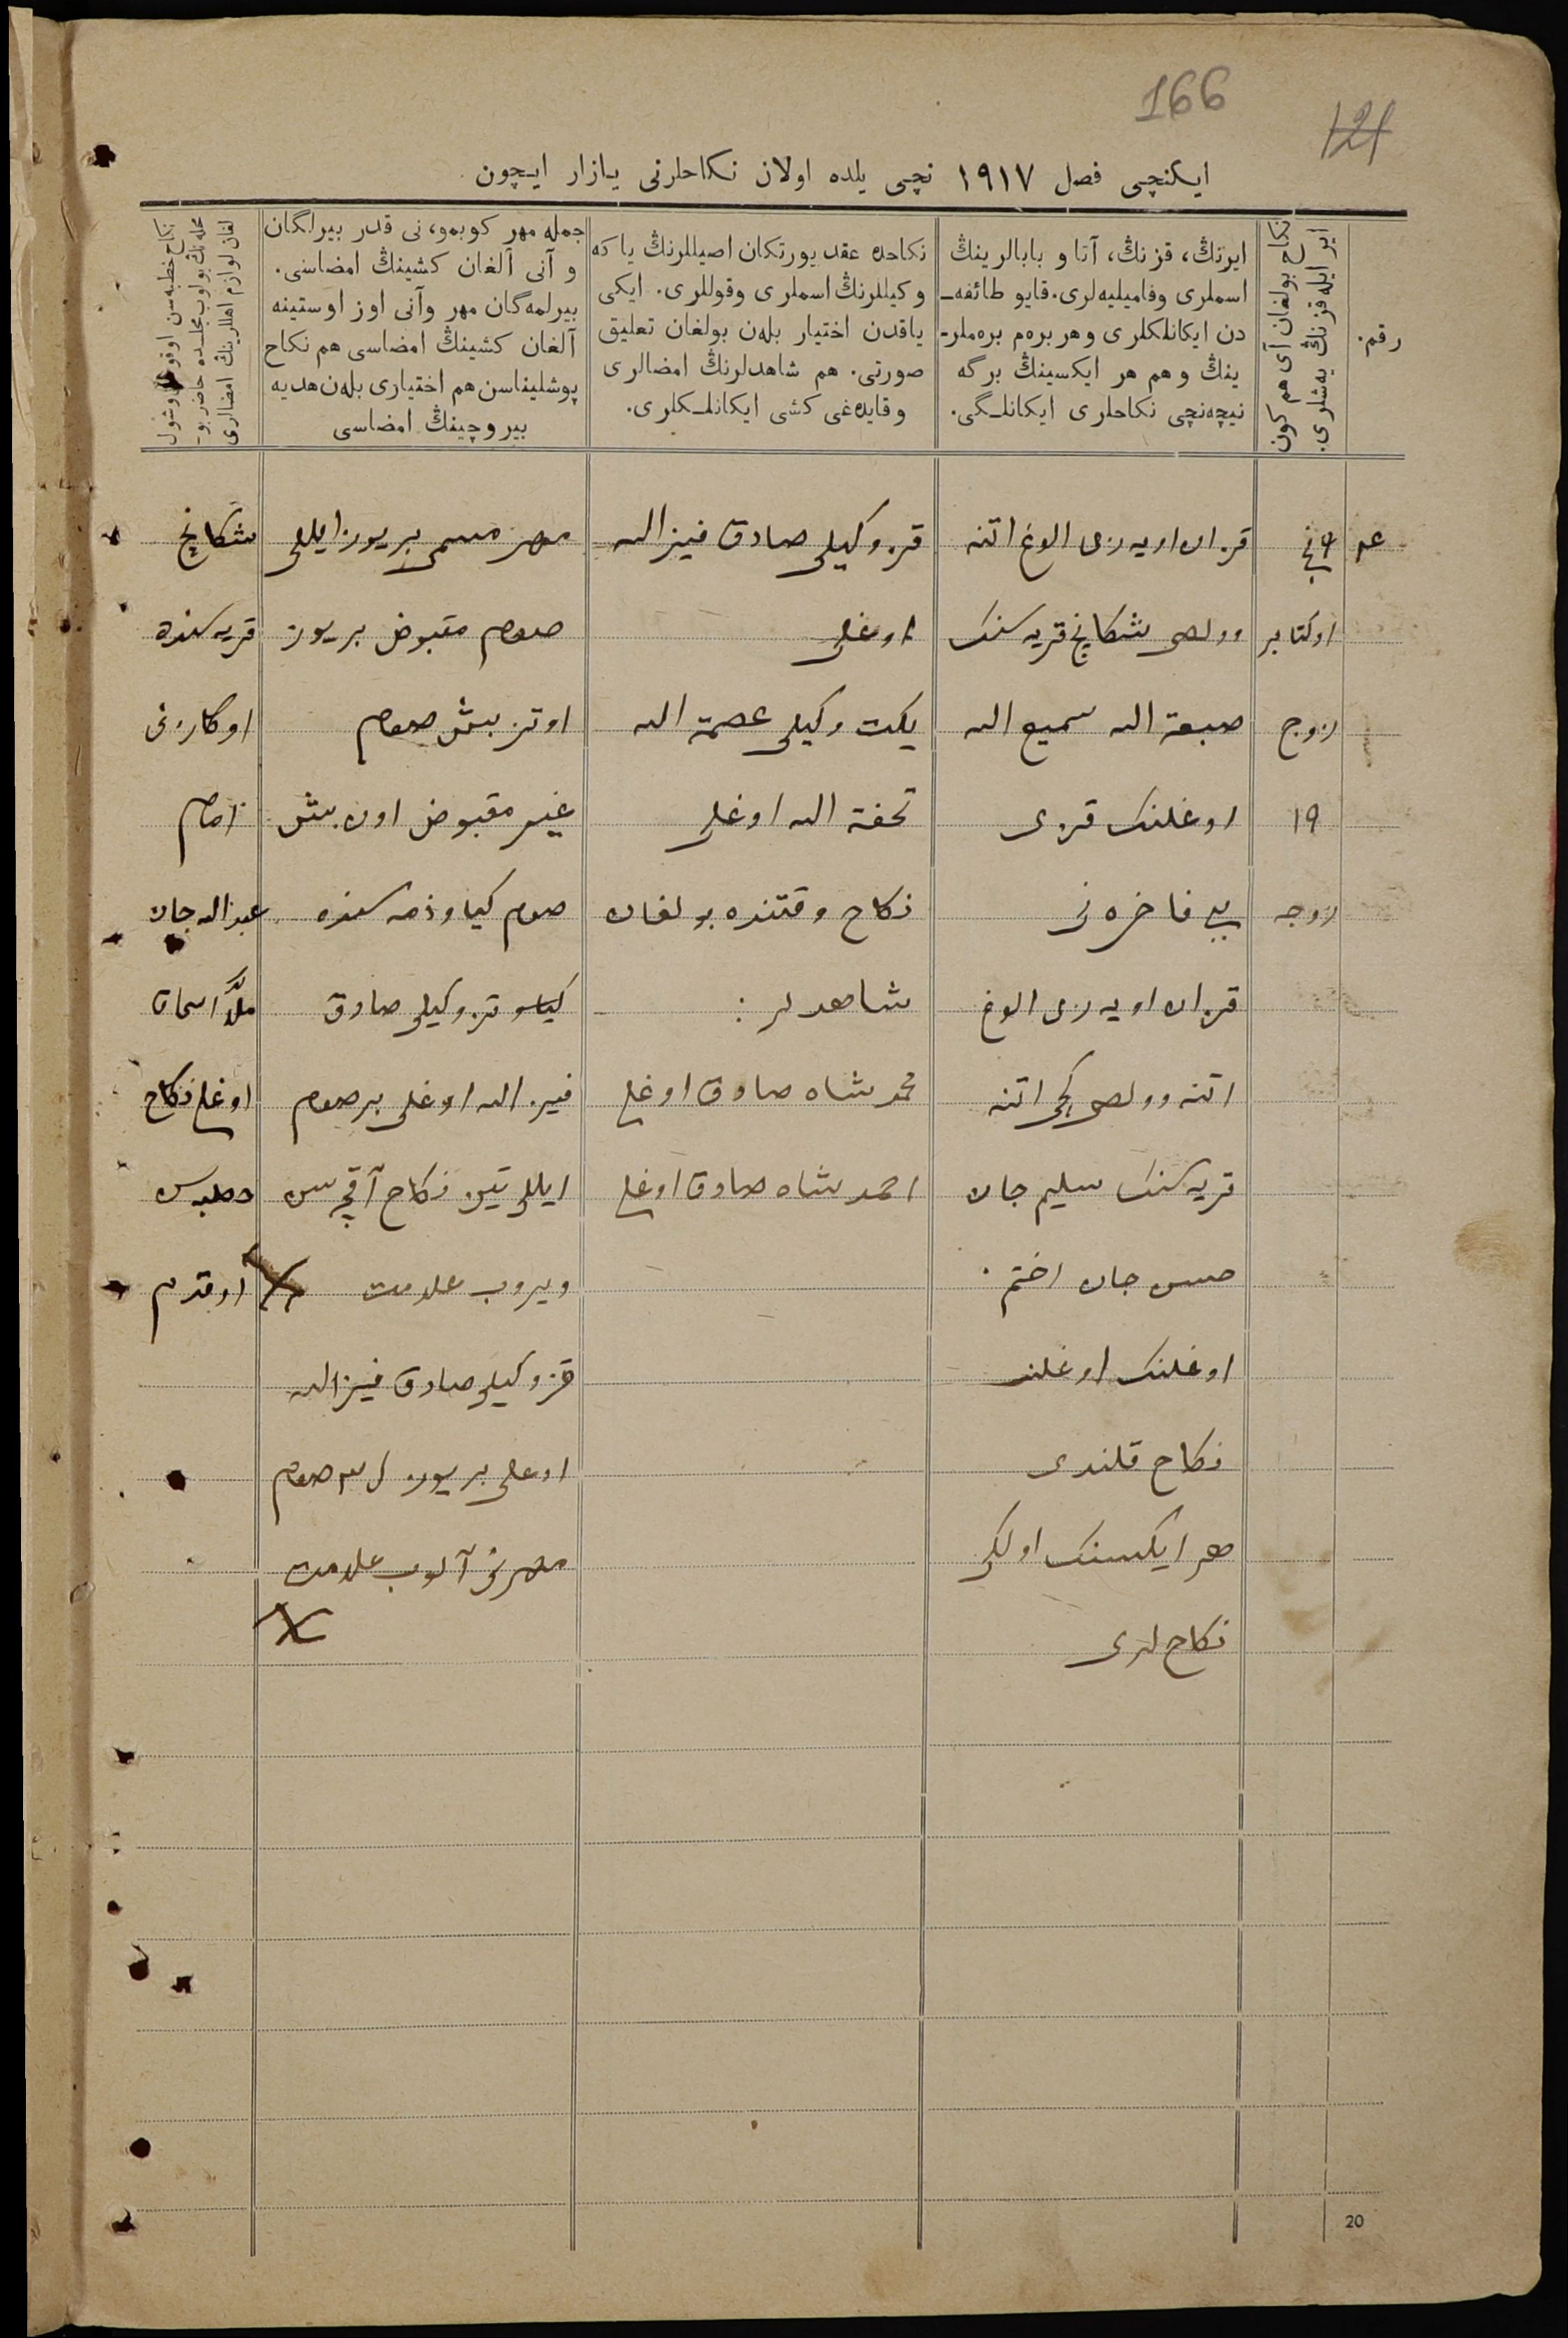 166
121
ایکنچی فصل ١٩١٧ نچی یلده اولان نکاحلرنی یازار ایچون
رقم.
نکاح بولغان آی هم کون
ایر ایله قزنڭ یه‌شلری.
ایرنڭ، قزنڭ، آتا و بابالرینڭ
اسملری وفامیلیه‌لری. قایو طائفه‌ـ
دن ایکانلکلری و هر بره‌م بره‌ملرـ
ینڭ و هم هر ایکسینڭ برگه
نیچه‌نچی نکاحلری ایکانلـگی.
نکاحده عقد یورتکان اصیللرنڭ یا که
وکیللرنڭ اسملری وقوللری. ایکی
یاقدن اختیار بله‌ن بولغان تعلیق
صورتی. هم شاهدلرنڭ امضالری
وقایده‌غی کشی ایکانلـکلری.
جمله مهر کوبمو، نی قدر بیرلگان
و آنی آلغان کشینڭ امضاسی.
بیرلمه‌گان مهر وآنی اوز اوستینه
آلغان کشینڭ امضاسی هم نکاح
پوشلیناسن هم اختیاری بله‌ن هدیه
بیروچینڭ امضاسی
نکاح خطبه‌سن اوقو
محله‌نڭ بو اوب مجلسده حاضر بوـ
لغان لوازم اهللرینڭ امضالری
اوکتابر
زوج
١٩
زوجه
قزان اویه‌زی الوغ اتنه
وولصی شکانچ قریه‌سنک
صبغة الله سمیع الله
اوغلنک قزی
بی‌بی فاخره‌نی
قزان اویه‌زی الوغ
اتنه وولصی کچی اتنه
قریه‌سنک سلیم جان
حسن جان اختم
اوغلنک اوغلنه
نکاح قلندی
هر ایکسنک اولکی
نکاح لری
قز وکیلی صادق فیض الله
اوغلی
یکت وکیلی عصمة الله
تحفة الله اوغلی
نکاح وقتنده بولغان
شاهدلر :
محمد شاه صادق اوغلی
احمد شاه صادق اوغلی
مهر مسمی بر یوز ایللی
صوم مقبوض بر یوز
اوتز بیش صوم
غیر مقبوض اون بیش
صوم کیاو ذمه‌سنده
کیاو قز وکیلی صادق
فیض الله اوغلی بر صوم
ایللی تین نکاح آقچه‌سن
ویروب علامت X
قز وکیلی صادق فیض الله
اوغلی بر یوز صوم
مهرنی آلوب علامت
X
شکانچ
قریه‌سنده
اوکازنی
امام
عبد الله جان
ملا اسحاق
اوغلی نکاح
خطبه‌سن
اوقدم
20